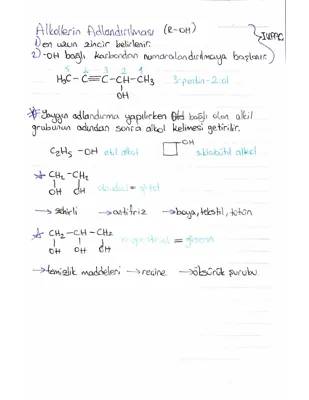 Alkollerin Adlandırılması (R-OH)
1) en uzun zincir belirlenir.
2) -OH bağlı karbondan numaralandırılmaya başlanır.
} IUPAC
5 4 3 2 1
H₃C-C≡C-CH-CH₃ 3-pentin-2-ol
OH
* Yaygın adlandırma yapılırken OH bağlı olan alkil
grubunun adından sonra alkol kelimesi getirilir.
C₂H₅-OH etil alkol OH siklobütil alkol
CH₂-CH₂
OH OH = glikol
→ zehirli → antifriz → boya, tekstil, tütün
CH₂-CH-CH₂ = gliserin
OH OH OH
→ temizlik maddeleri → reçine → öksürük şurubu